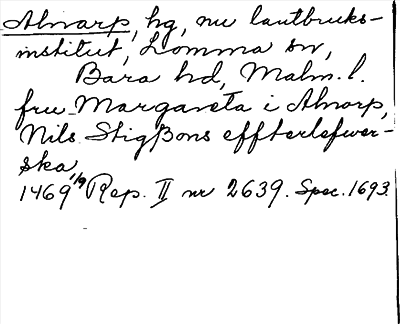 Alnarp, hg, nu lantbruks-
institut, Lomma sn,
Bara hd, Malm. l.
fru Margareta i Alnarp,
Nils Stigssons effterlefwer-
ska
1469 1/9 Rep. II nr 2639. Spec. 1693.